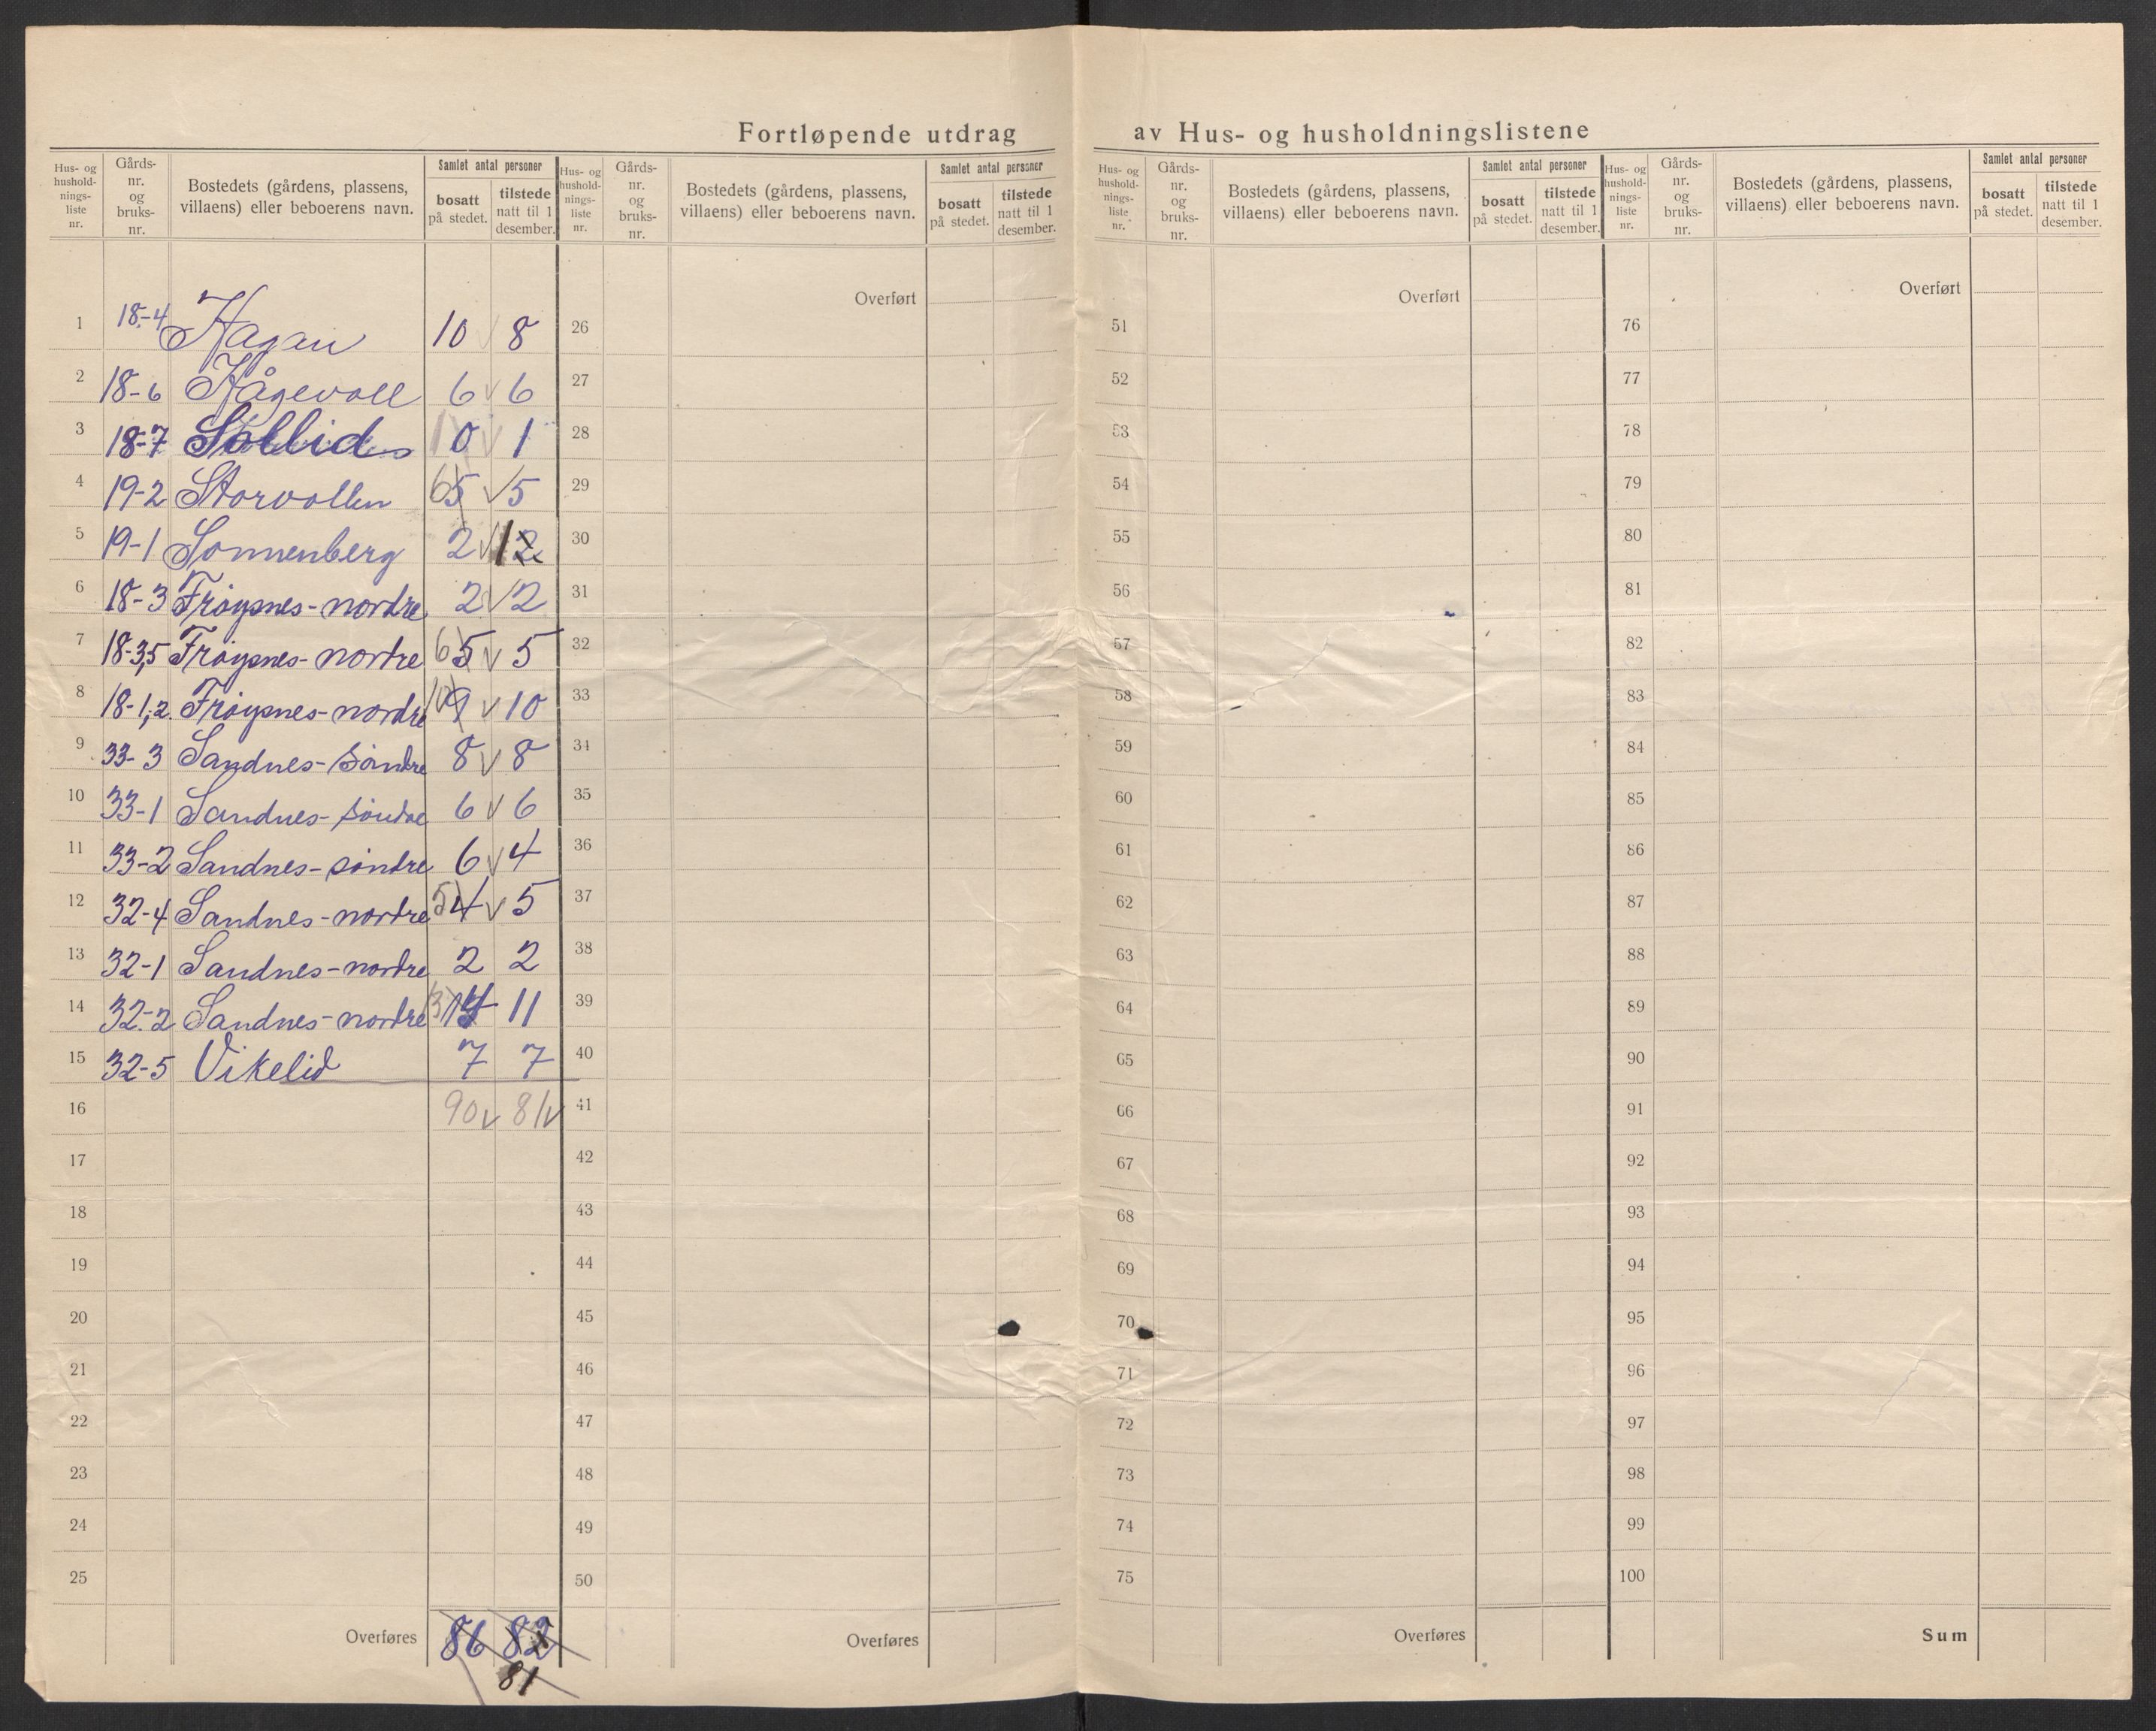 Fortløpende utdrag av Hus- og husholdningslistene
Hus- og hushold-nings-liste nr. | Gårds-nr. og bruks-nr. | Bostedets (gårdens, plassens, villaens) eller beboerens navn. | Samlet antal personer | bosatt på stedet. | tilstede natt til 1 desember.
Hus- og hushold-nings-liste nr. | Gårds-nr. og bruks-nr. | Bostedets (gårdens, plassens, villaens) eller beboerens navn. | Samlet antal personer | bosatt på stedet. | tilstede natt til 1 desember.
Hus- og hushold-nings-liste nr. | Gårds-nr. og bruks-nr. | Bostedets (gårdens, plassens, villaens) eller beboerens navn. | Samlet antal personer | bosatt på stedet. | tilstede natt til 1 desember.
Hus- og hushold-nings-liste nr. | Gårds-nr. og bruks-nr. | Bostedets (gårdens, plassens, villaens) eller beboerens navn. | Samlet antal personer | bosatt på stedet. | tilstede natt til 1 desember.
Overført Overført Overført
1 18-4 Hagan 10 8 26 51 76
2 18-6 Hågevoll 6 6 27 52 77
3 18-7 Sollid 0 1 28 53 78
4 19-2 Storvollen 6 5 5 29 54 79
5 19-1 Sonnenberg 2 1 2 30 55 80
6 18-3 Frøysnes-nordre 2 2 31 56 81
7 18-3,5 Frøysnes-nordre 6 5 5 32 57 82
8 18-1,2. Frøysnes-nordre 10 9 10 33 58 83
9 33-3 Sandnes-søndre 8 8 34 59 84
10 33-1 Sandnes-søndre 6 6 35 60 85
11 33-2 Sandnes-søndre 6 4 36 61 86
12 32-4 Sandnes-nordre 5 4 5 37 62 87
13 32-1 Sandnes-nordre 2 2 38 63 88
14 32-2 Sandnes-nordre 11 39 64 89
15 32-5 Vikelid 7 7 40 65 90
16 90 81 41 66 91
17 42 67 92
18 43 68 93
19 44 69 94
20 45 70 95
21 46 71 96
22 47 72 97
23 48 73 98
24 49 74 99
25 50 75 100
Overføres 86 82 Overføres Overføres Sum
81